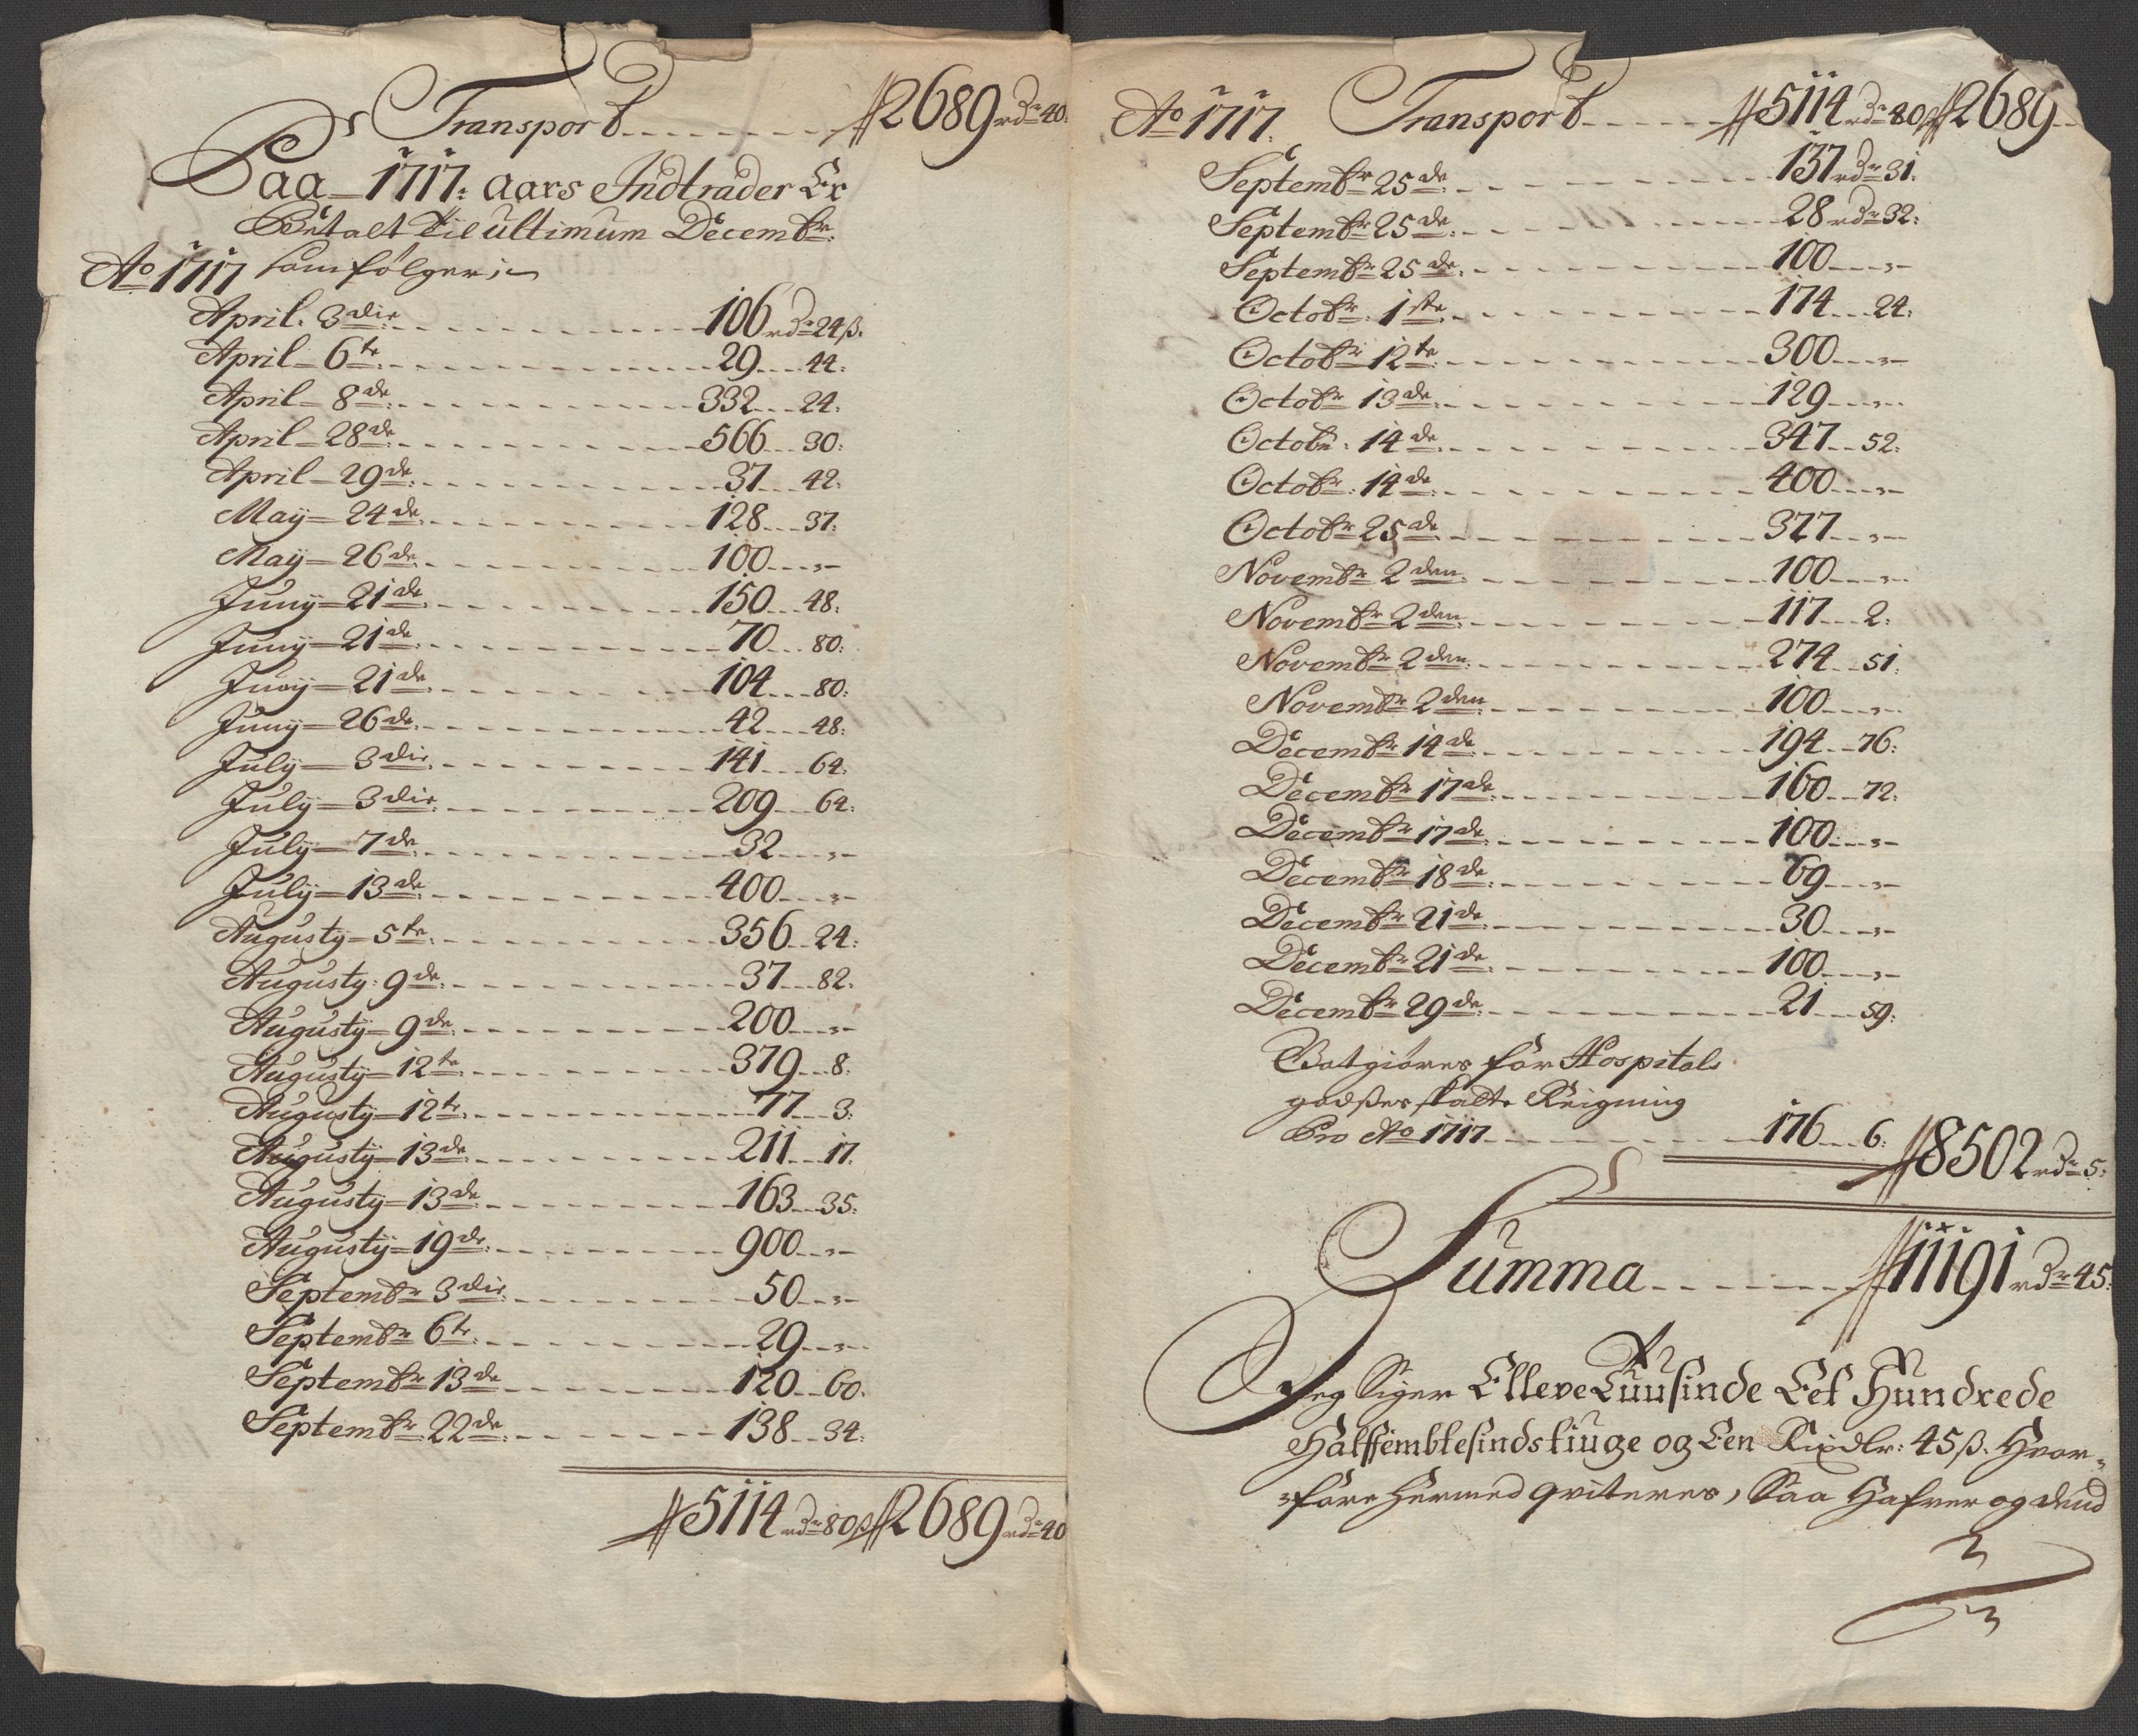 Transport - - - - - - - 2689 rdr 40:
Paa 1717: aars Indtrader Er
Betalt Til ultimum Decembr:
Ao 1717 som følger;
April. 3die: - - - 106 rdr 24ß.
April 6te: - - - 29 - - 44:
April 8de: - - - 332 - - 24:
April 28de: - - - 566 - - 30:
April 29de: - - - 37 - - 42:
Maÿ 24de: - - - 128 - - 37:
Maÿ 26de: - - - 100 - - „ -
Junÿ 21de: - - - 150 - - 48:
Junÿ 21de: - - - 70 - - 80:
Junÿ 21de: - - - 104 - - 80:
Junÿ 26de: - - - 42 - - 48:
Julÿ 3die: - - - 141 - - 64:
Julÿ 3die: - - - 209 - - 64:
Julÿ 7de: - - - 32 - - „ -
Julÿ 13de: - - - 400 - - „ -
Augustÿ 5te: - - - 356 - - 24:
Augustÿ: 9de: - - - 37 - - 82:
Augustÿ 9de: - - - 200 - - „ -
Augustÿ 12te: - - - 379 - - 8:
Augustÿ 12te: - - - 77 - - 3:
Augustÿ 13de: - - - 211 - - 17:
Augustÿ 13de: - - - 163 - - 35:
Augustÿ 19de: - - - 900 - - „ -
Septembr 3die: - - - 50 - - „ -
Septembr 6te: - - - 29 - - „ -
Septembr 13de - - - 120 - - 60:
Septembr 22de: - - - 138 - - 34:
5114 rdr 80ß 2689 rdr 40
Ao 1717. Transport - - - 5114 rdr 80ß 2689 - -
Septembr 25de: - - - 137 rdr 31:
Septembr 25de: - - - 28 rdr 32:
Septembr 25de: - - - 100 - - „ -
Octobr. 1ste: - - - 174 - - 24:
Octobr 12te: - - - 300 - - „ -
Octobr 13de: - - - 129 - - „ -
Octobr: 14de: - - - 347 - - 52:
Octobr: 14de: - - - 400 - - „ -
Octobr 25de: - - - 327 - - „ -
Novembr 2den: - - - 100 - - „ -
Novembr 2den: - - - 117 - - 2:
Novembr 2den: - - - 274 - - 51:
Novembr 2den - - - 100 - - „ -
Decembr 14de: - - - 194 - - 76:
Decembr 17de: - - - 160 - - 72:
Decembr 17de: - - - 100 - - „ -
Decembr 18de: - - - 69 - - „ -
Decembr 21de: - - - 30 - - „ -
Decembr 21de: - - - 100 - - „ -
Decembr 29de: - - - 21 - - 59:
Gotgiøres for Hospitals
godßes skatte Reigning
Pro Ao 1717 - - - 176 - - 6: 8502 rdr 5:
Summa - - - - - - 11191 rdr 45:
Jeg Siger Elleve Tuusinde Eet Hundrede
Halffemblesindstiuge og Een Rixdlr: 45ß. Hvor-
-fore Hermed qviteres, Saa Hafver og dend